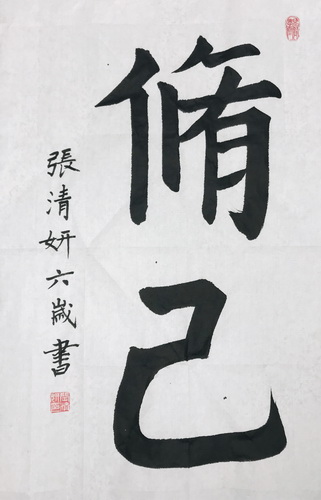 脩己
張清妍六歲書